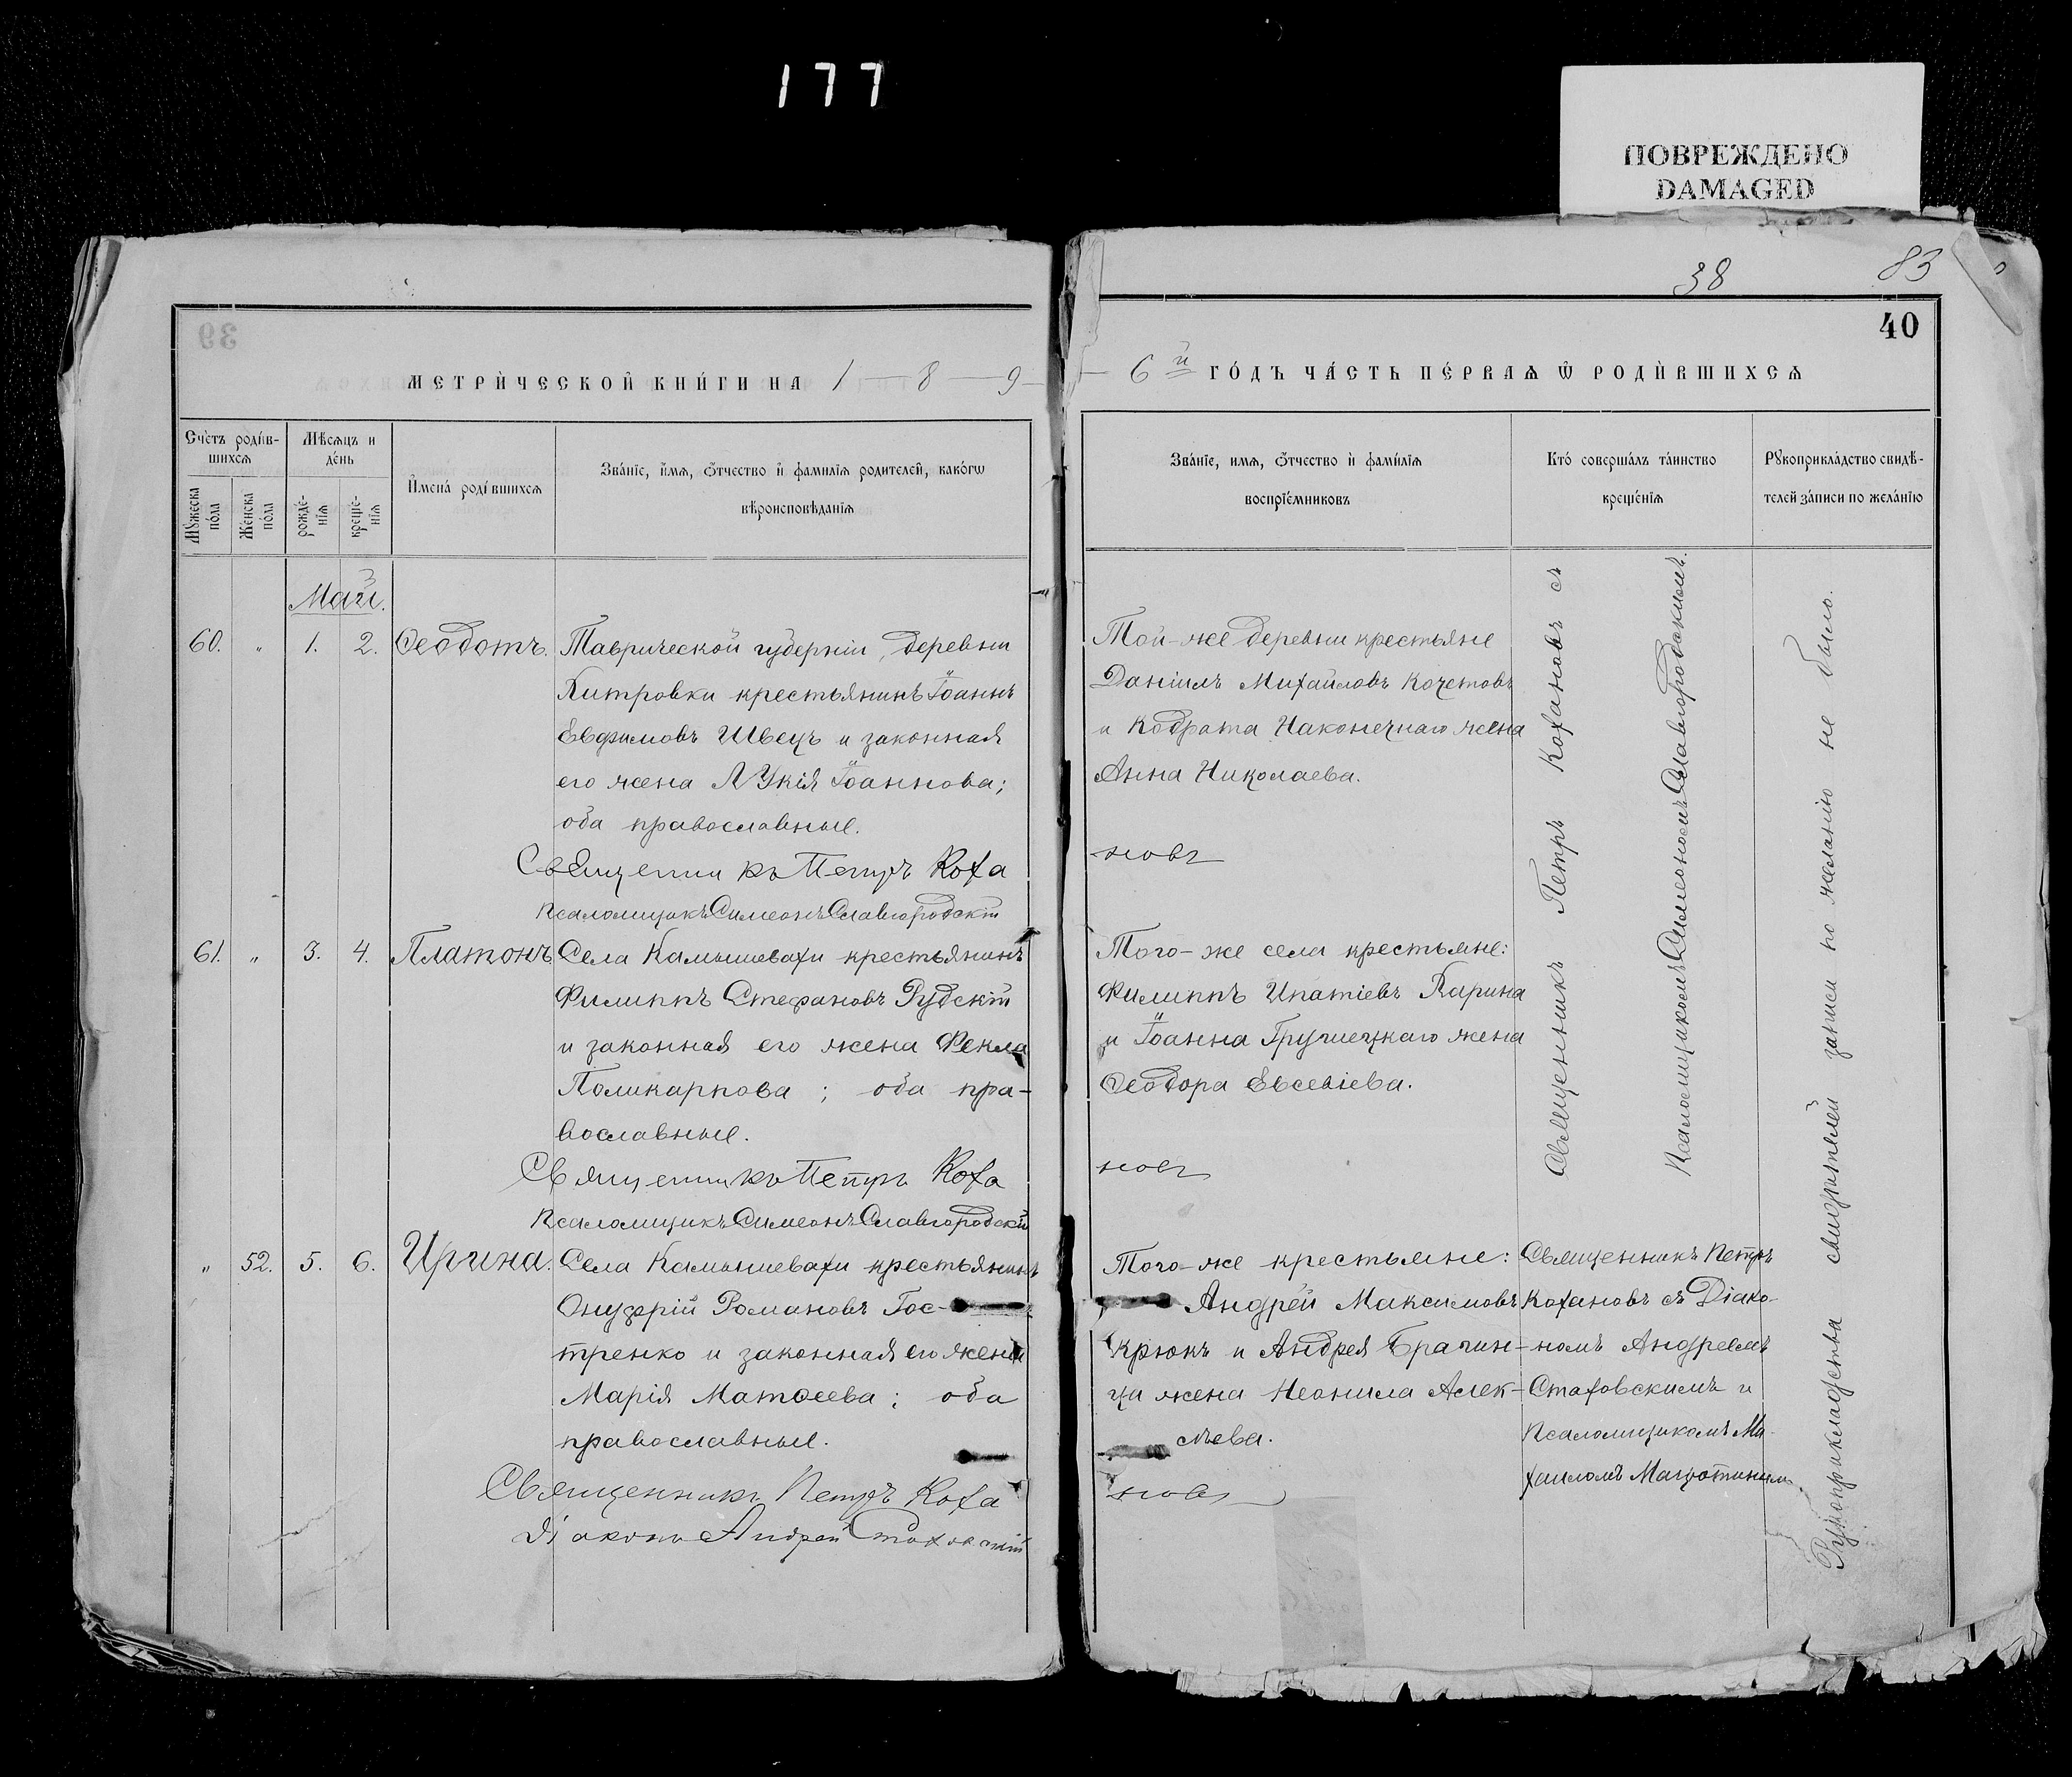 177
ПОВРЕЖДЕНО
DAMAGED
38
83
39
40
МЕТРИ́ЧЕСКОЙ КНИ́ГИ НА 1-8-9-
-6й ГО́ДЪ ЧА́СТЬ ПЕ́РВАѦ Ѿ РОДИ́ВШИХСѦ
Сче́тъ роди́в-
шихсѧ
Мѣ́сѧцъ и
де́нь
Мꙋ́жеска
по́ла
Же́нска
по́ла
рожде́-
нїѧ
креще́-
нїѧ
И҆мена́ роди́вшихсѧ
Зва́нїе, и҆́мѧ, ѻ҆́тчество и҆ фами́лїѧ родителей, како́гѡ
вѣроисповѣ́данїѧ
Зва́нїе, имѧ, ѻ҆́тчество и҆ фами́лїѧ
воспрїе́мниковъ
Кто́ соверша́лъ та́инство
креще́нїѧ
Рꙋкоприкла́дство свидѣ́-
телей за́писи по жела́нїю
Май.
60. " 1. 2. Ѳеодотъ. Таврической губерніи, деревни
Хитровки крестьянинъ Іоаннъ
Евфимовъ Швецъ и законная
его жена Лукія Іоаннова;
оба православные.
Священникъ Петръ Коха
Псаломщикъ Симеонъ Славгородскій
Той-же деревни крестьяне
Даніилъ Михайловъ Кочетовъ
и Кодрата Наконечнаго жена
Анна Николаева.
новъ
61. " 3. 4. Платонъ. Села Камышевахи крестьянинъ
Филиппъ Стефановъ Рудскій
и законная его жена Фекла
Поликарпова; оба пра-
вославные.
Священникъ Петръ Коха
Псаломщикъ Симеонъ Славгородскій
Того-же села крестьяне:
Филиппъ Ипатіевъ Карина
и Іоанна жена
Ѳеодора Евсевіева.
новъ
Священникъ Петръ Кохановъ съ
Псаломщикомъ Симеономъ Славгородскимъ.
" 52. 5. 6. Ирина. Села Камышевахи крестьянинъ
Онуфрій Романовъ Гос-
тренко и законная его жена
Марія Матѳеева; оба
православные.
Священникъ Петръ Коха
Діаконъ Андрей Стаховскій
Того-же крестьяне:
Андрей Максимовъ
Крюкъ и Андрея Брагин-
ца жена Неонила Алек-
сѣева.
новъ
Священникъ Петръ
Кохановъ съ Діако-
номъ Андреемъ
Стаховскимъ и
Псаломщикомъ Ми-
хаиломъ
Рукоприкладства свидѣтелей записи по желанію не было.